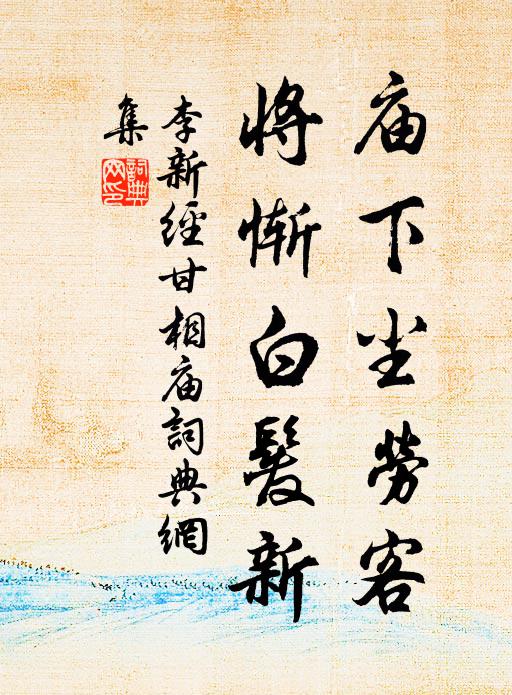 庙下尘劳客
将惭白髮新
李新經甘相庙詞典網
集
詞典
网印